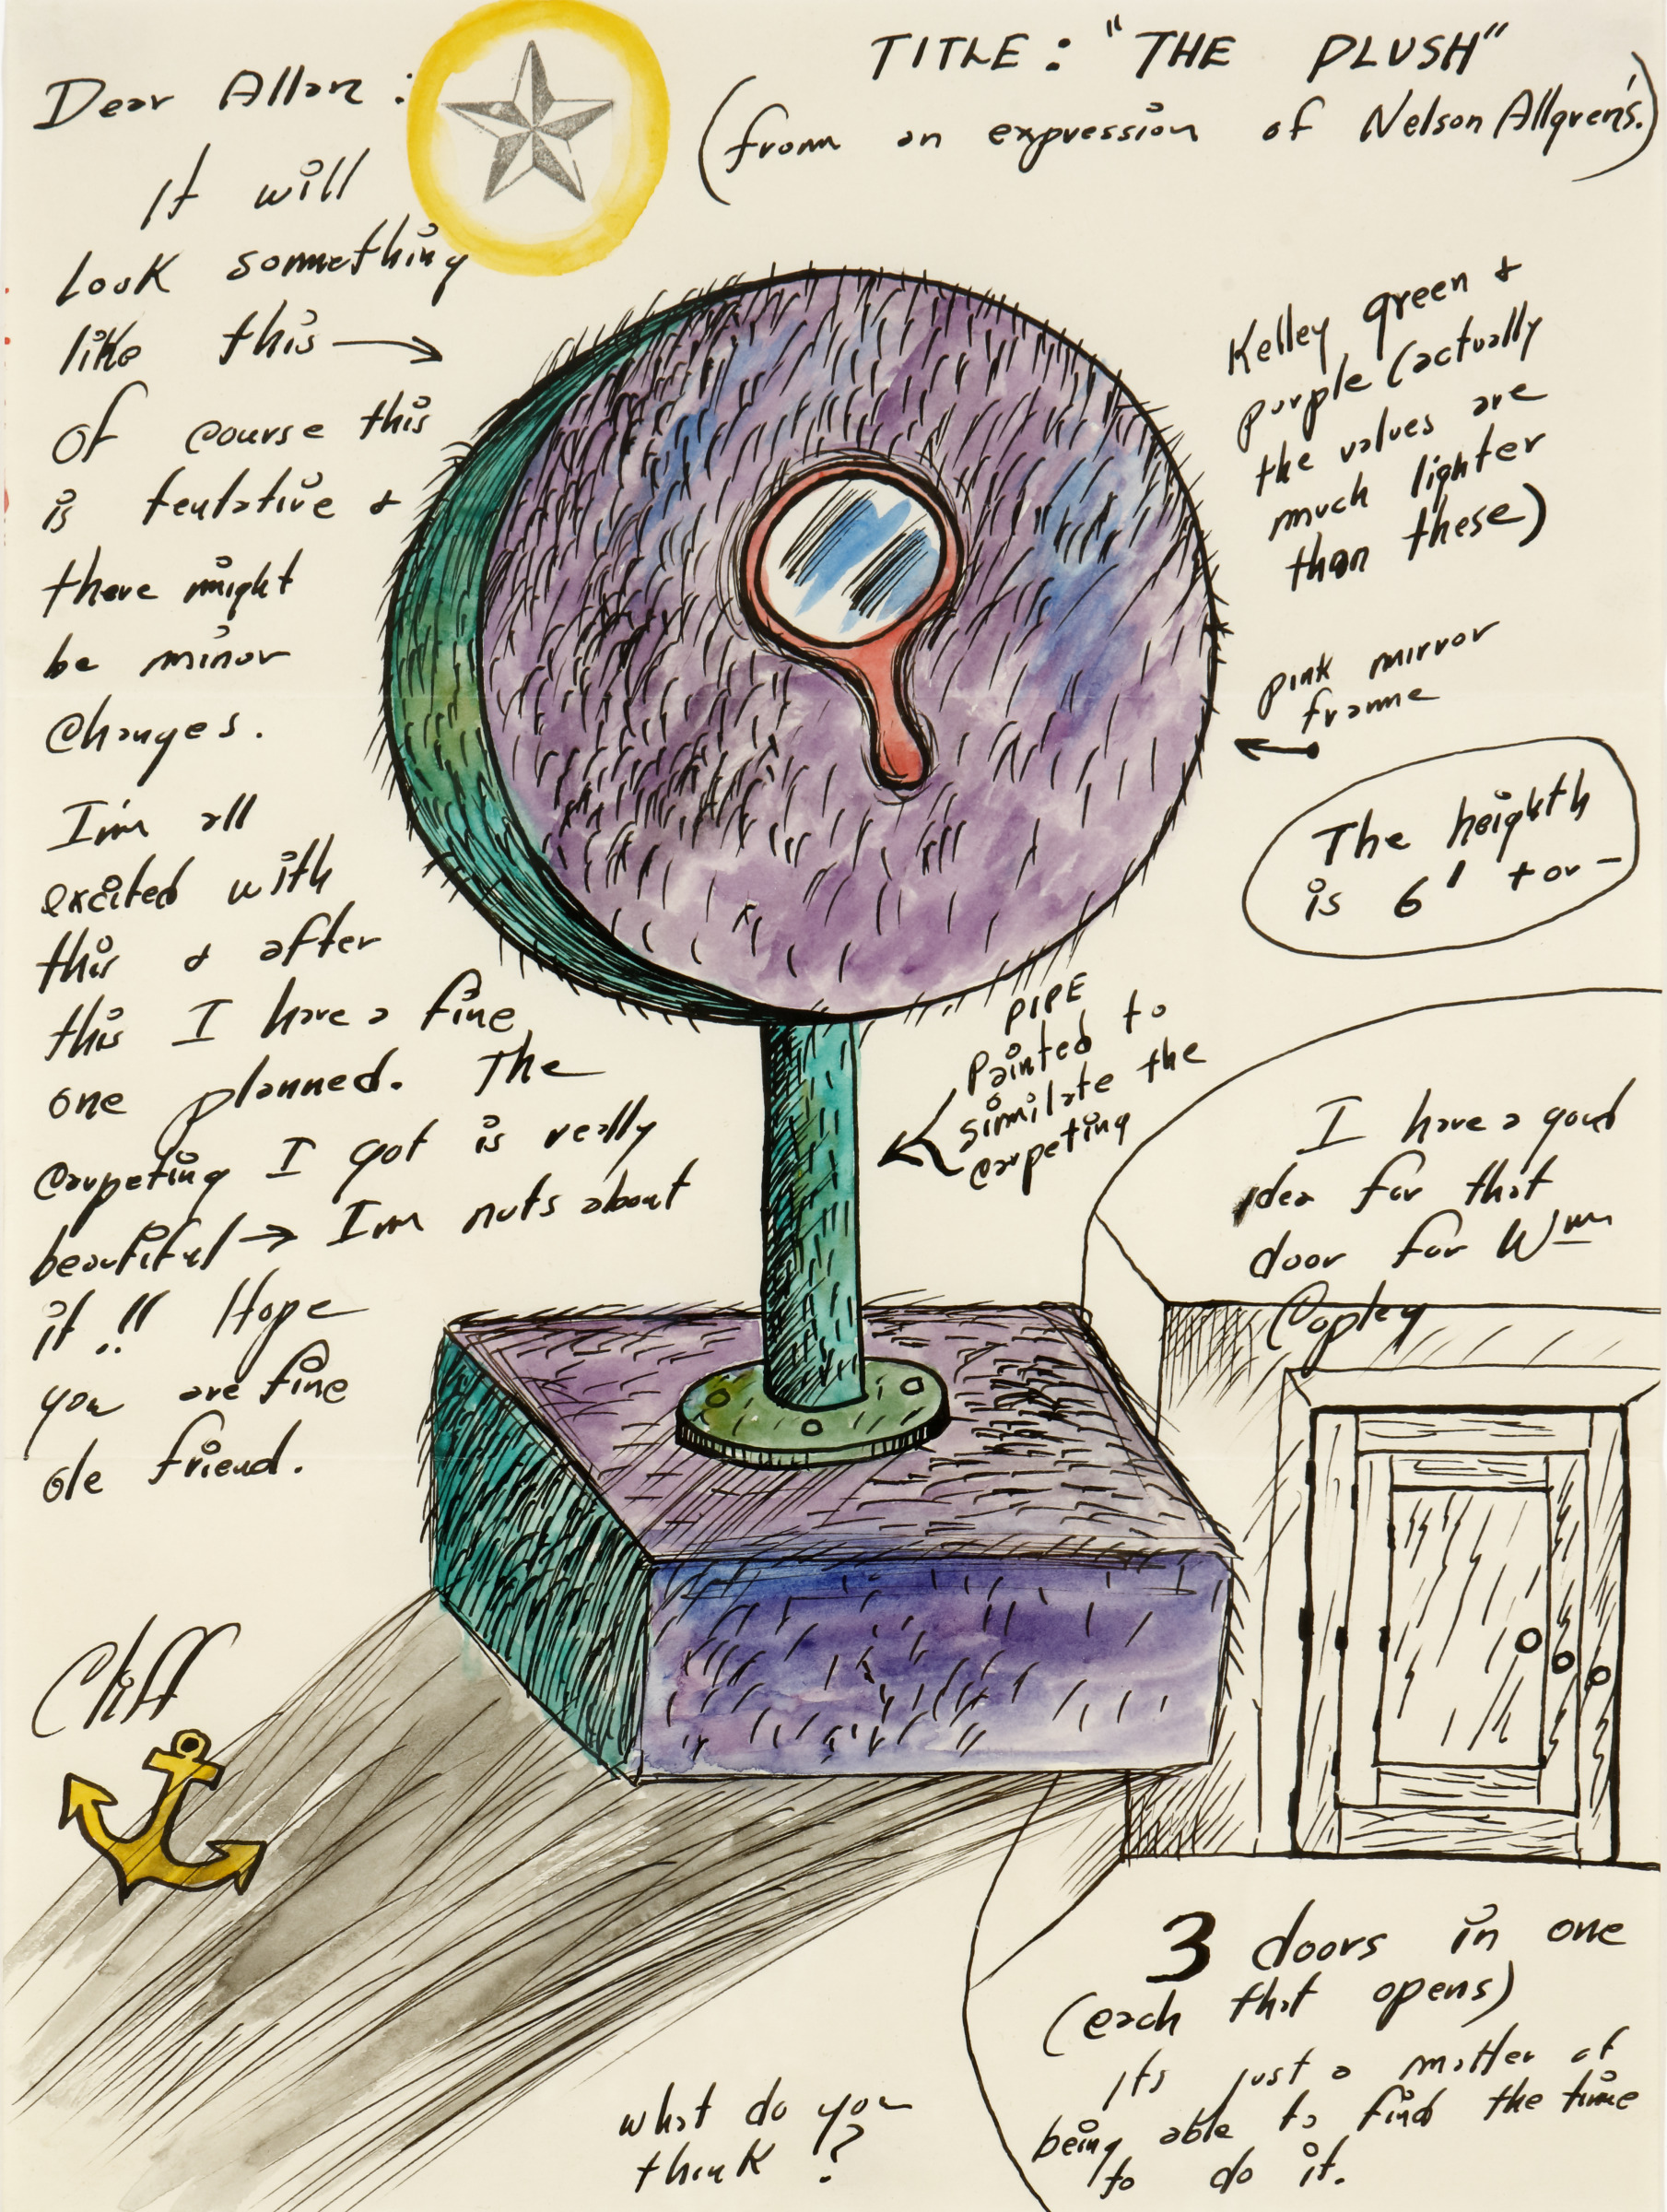 Dear Allan:
It will
look something
like this →
Of course this
is tentative &
there might
be minor
changes.
I'm all
excited with
this & after
this I have a fine
one planned. The
carpeting I got is really
beautiful → I'm nuts about
it!! Hope
you are fine
ole friend.
Cliff
TITLE: "THE PLUSH"
(from an expression of Nelson Allgren's.)
Kelley green &
purple (actually
the values are
much lighter
than these)
pink mirror
frame
The heighth
is 6' + or -
PIPE
Painted to
similate the
carpeting
I have a good
idea for that
door for Wm
Copley
3 doors in one
(each that opens)
Its just a matter of
being able to find the time
to do it.
what do you
think?